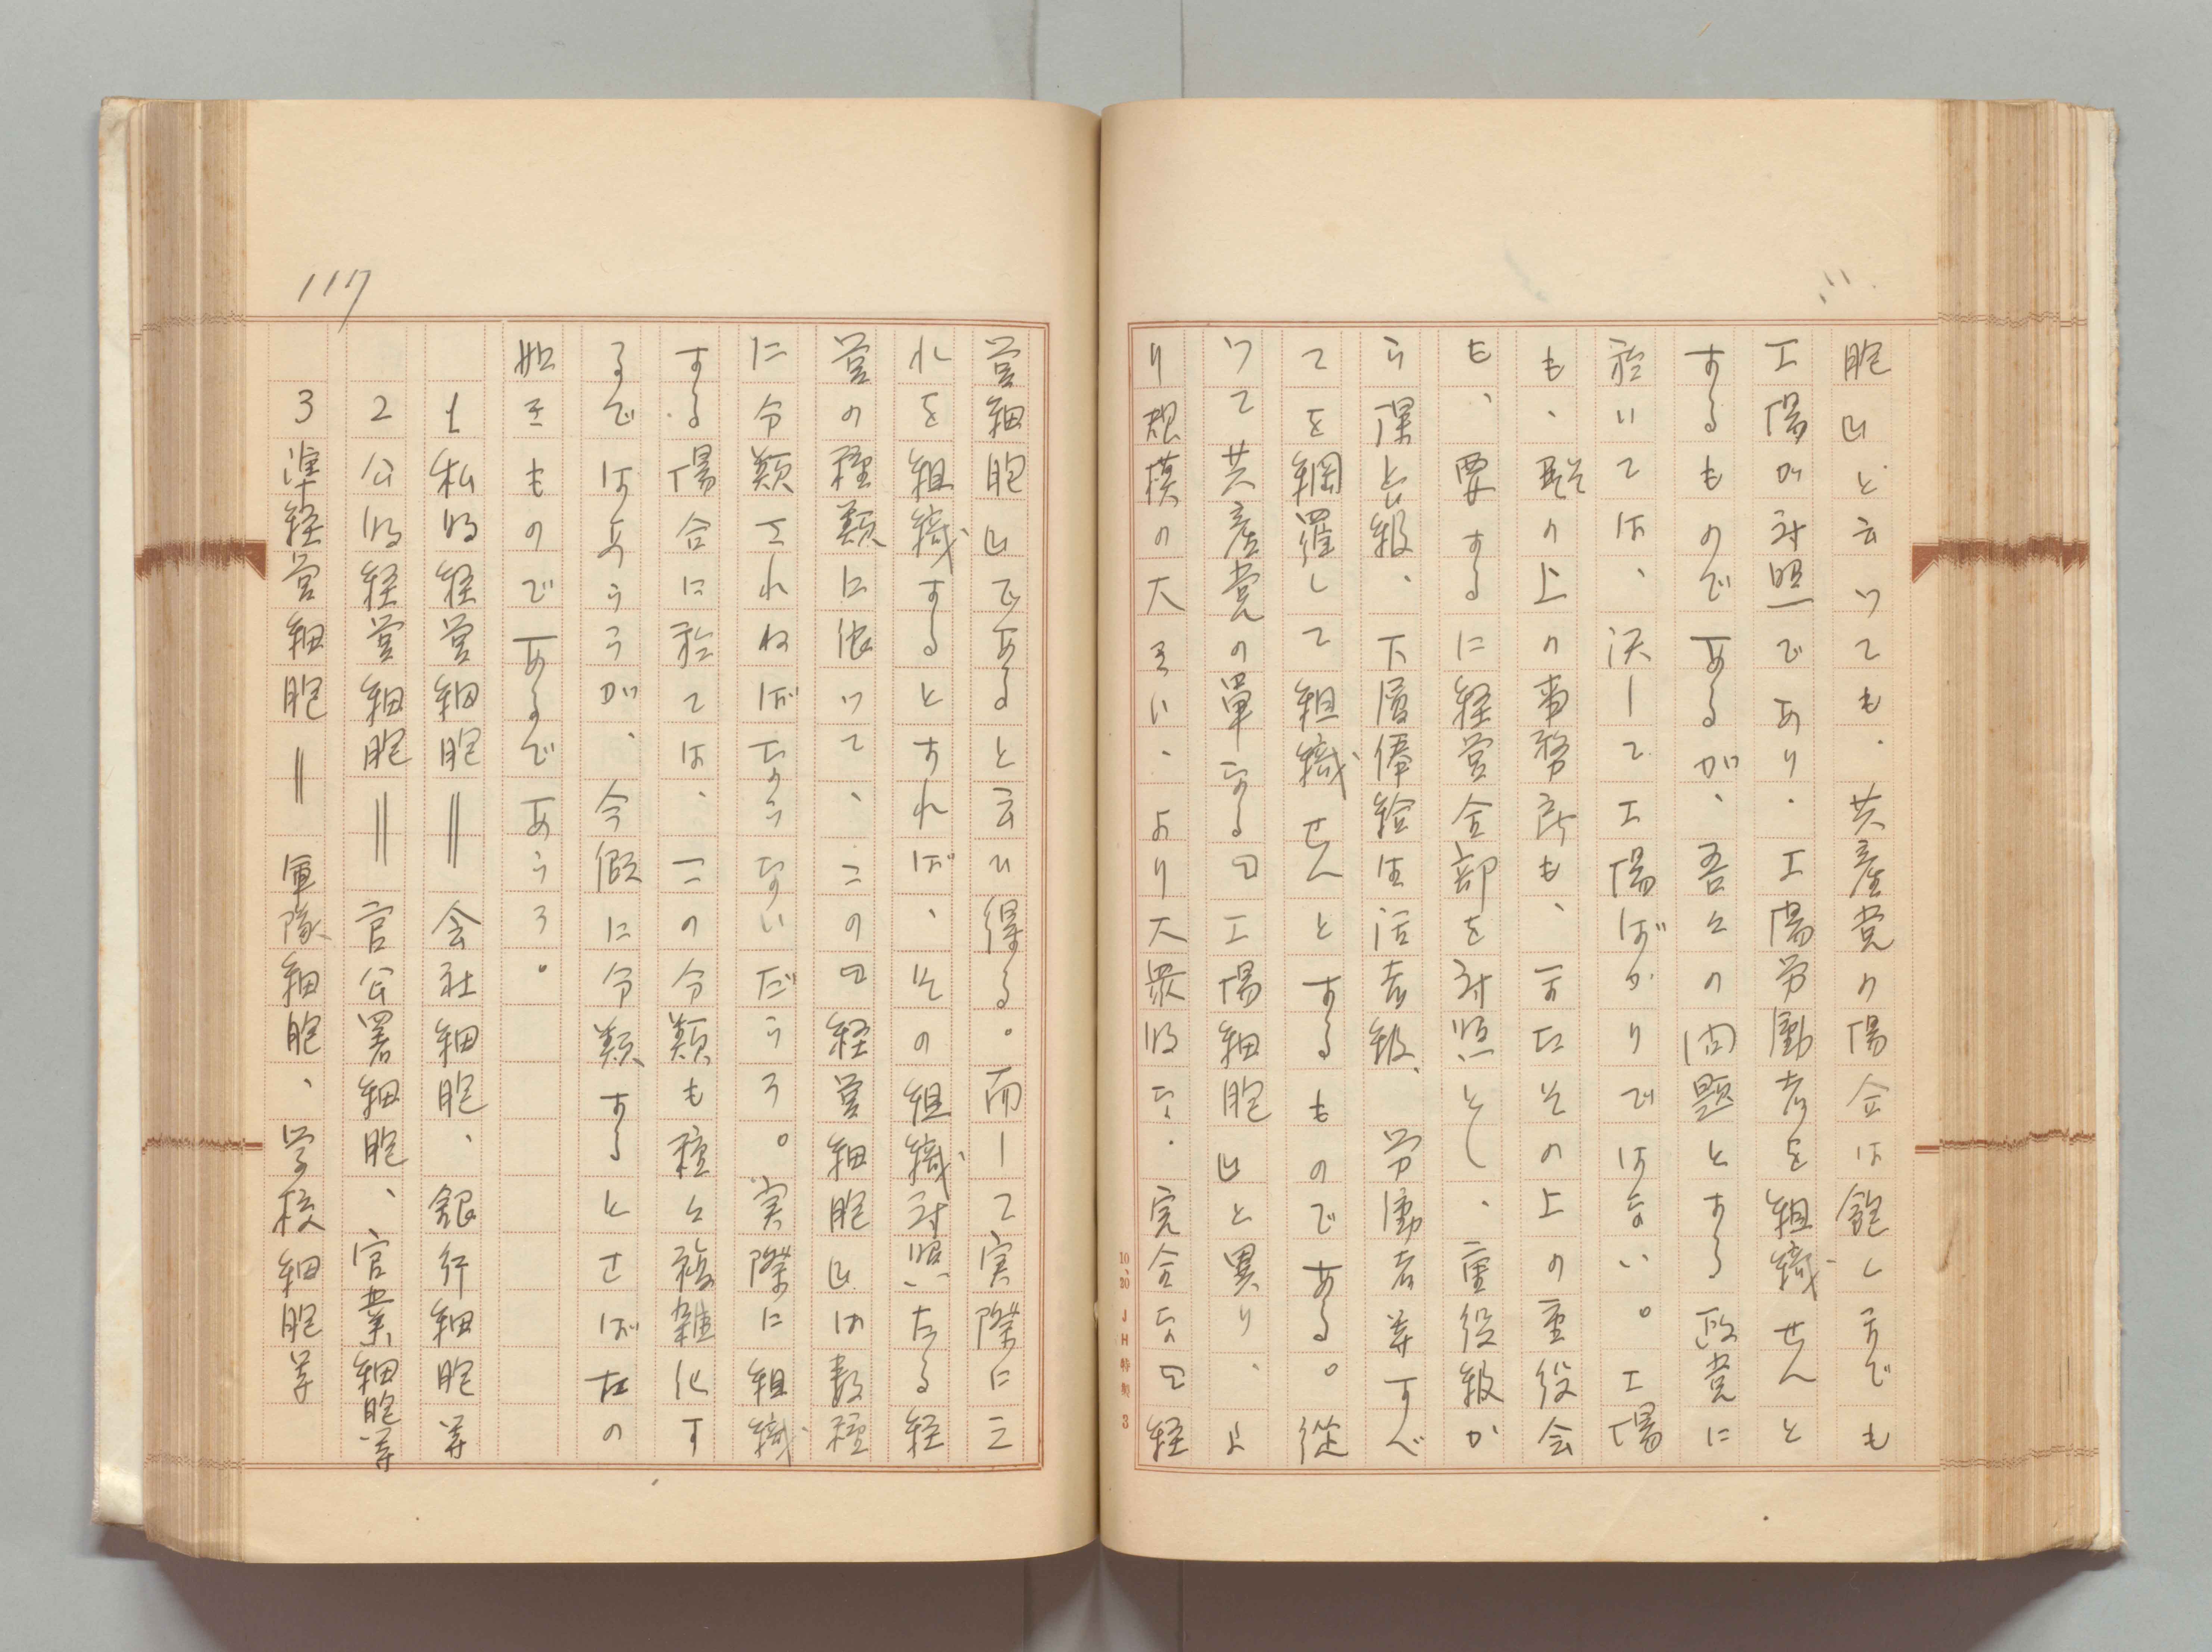 胞』と云つても、共産党の場合は飽くまでも
工場が対照であり、工場労働者を組織せんと
するものであるが、吾々の問題とする政党に
於いては、決して工場ばかりではない。工場
も、その上の事務所も、またその上の重役会
も、要するに経営全部を対照とし、重役級か
ら課長級、下層俸給生活者級、労働者等すべ
てを網羅して組織せんとするものである。従
つて共産党の単なる『工場細胞』と異り、よ
り規模の大きい、より大衆的な、完全な『経
10.20 JH特製 3
117
営細胞』であると云ひ得る。而して実際にこ
れを組織するとすれば、その組織対照たる経
営の種類に依つて、この『経営細胞』は数種
に分類されねばならないだらう。実際に組織
する場合に於ては、この分類も種々複雑化す
るではあらうが、今仮に分類するとせば左の
如きものであるであらう。
1 私的経営細胞＝会社細胞、銀行細胞等
2 公的経営細胞＝官公署細胞、官業細胞等
3 準経営細胞＝軍隊細胞、学校細胞等